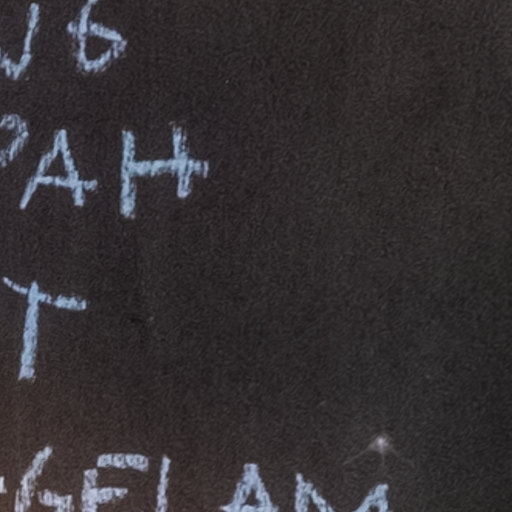 UG
PAH
T
GELAM